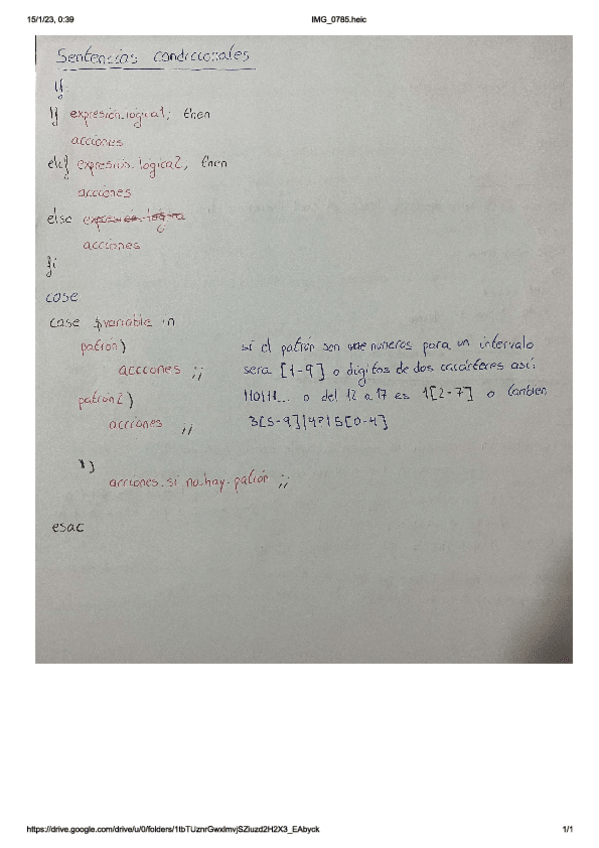 15/1/23, 0:39 IMG_0785.heic
Sentencias condicionales
if
if expresión.lógica1; then
acciones
elif expresión.lógica2, then
acciones
else expresión.lógica
acciones
fi
case
case $variable in
patrón)
acciones ;;
patrón2)
acciones ;;
*)
acciones.si no.hay.patrón ;;
esac
si el patrón son números para un intervalo
sera [1-9] o digitos de dos carácteres así:
10|11... o del 12 a 17 es 1[2-7] o tambien
3[5-9]|4?|5[0-4]
https://drive.google.com/drive/u/0/folders/1tbTUznrGwxlmvjSZiuzd2H2X3_EAbyck 1/1